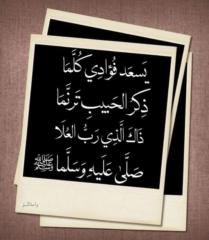 يَسعَد فُؤَادِي كُلَّمَا
ذِكرُ الحَبيبِ تَرنَّمَا
ذَاكَ الَّذِي رَبُّ العُلَا
صَلَّىٰ عَلَيهِ وَسَلَّمَا ﷺ